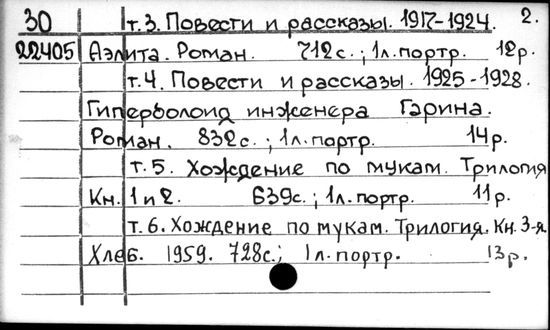 30 т.3. Повести и рассказы. 1917-1924. 2.
22405 Аэлита. Роман. 712с.; 1л.портр. 12р.
т.4. Повести и рассказы. 1925-1928.
Гиперболоид инженера Гарина.
Роман. 832с.; 1л.портр. 14р.
т.5. Хождение по мукам. Трилогия
Кн. 1 и 2. 639с.; 1л.портр. 11р.
т.6. Хождение по мукам. Трилогия. Кн. 3-я.
Хлеб. 1959. 728с.; 1л.портр. 13р.